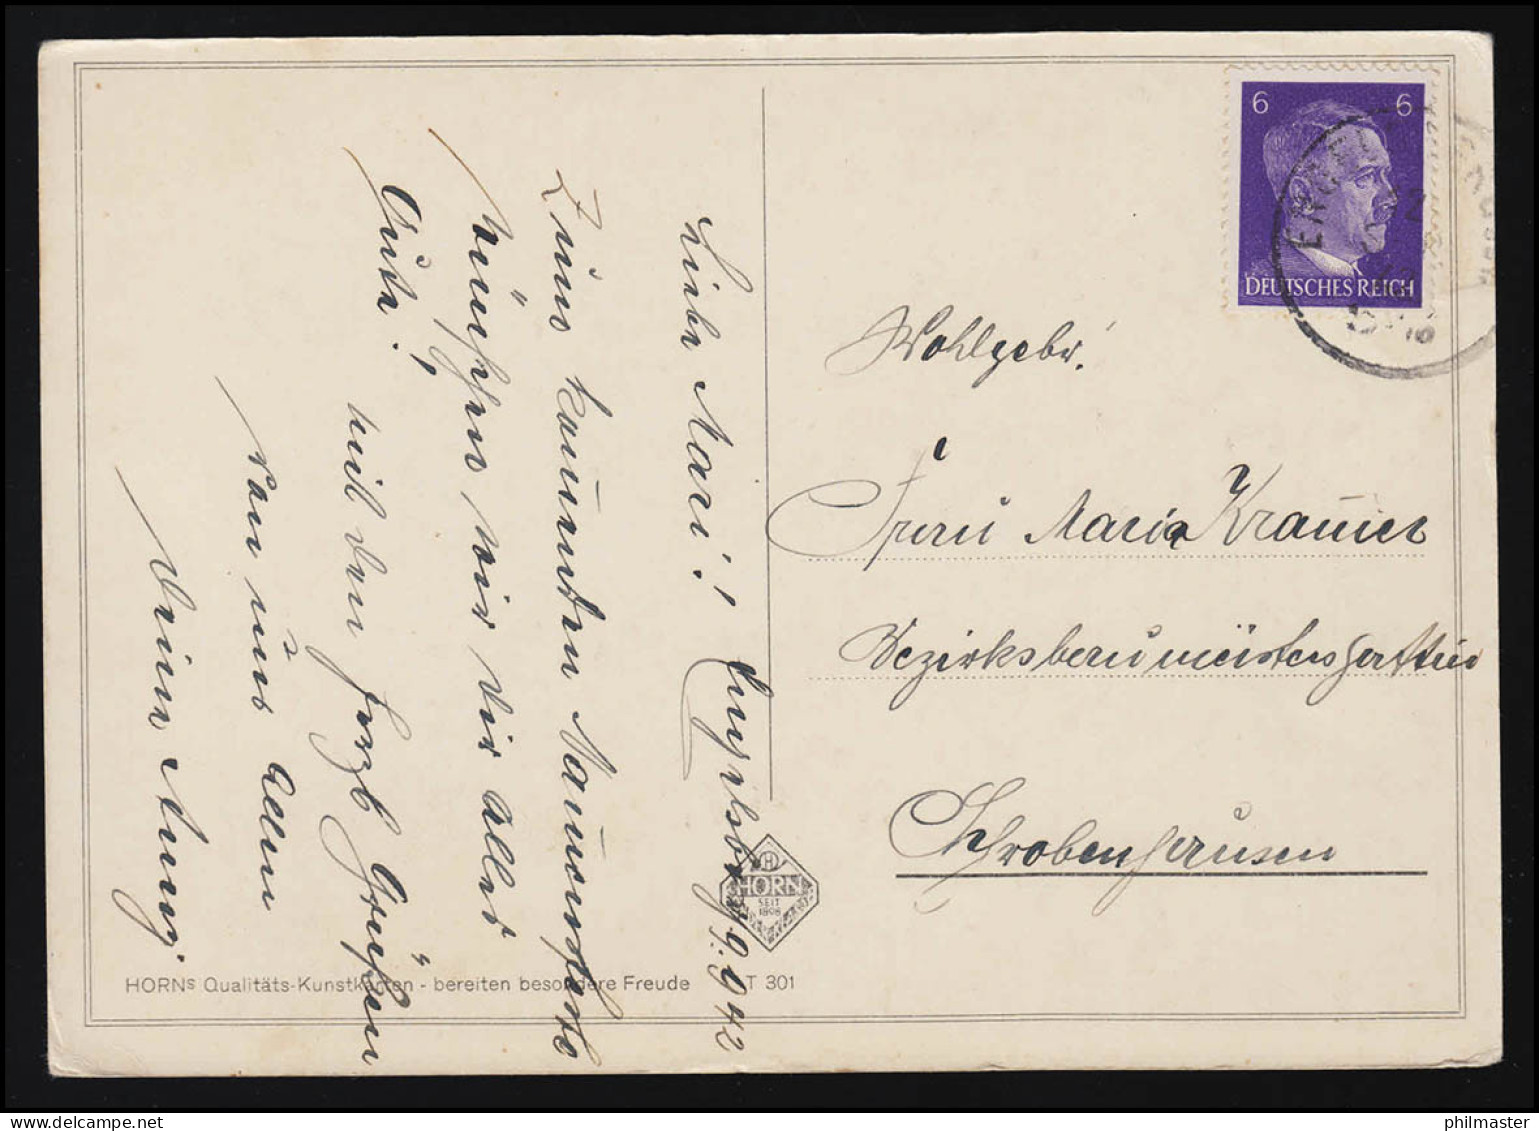 6 6
DEUTSCHES REICH
Wohlgebr.
Frau Maria Krammer
Bezirksbaumeistersgattin
Schrobenhausen
9.9.1942
Liebe Mari!
Zum kommenden Namensfeste
wünschen wir Dir alles
Gute!
Mit den herzl. Grüßen
von uns allen
Deine
HORN
SEIT
1898
HORNs Qualitäts-Kunstkarten - bereiten besondere Freude T 301
philmaster